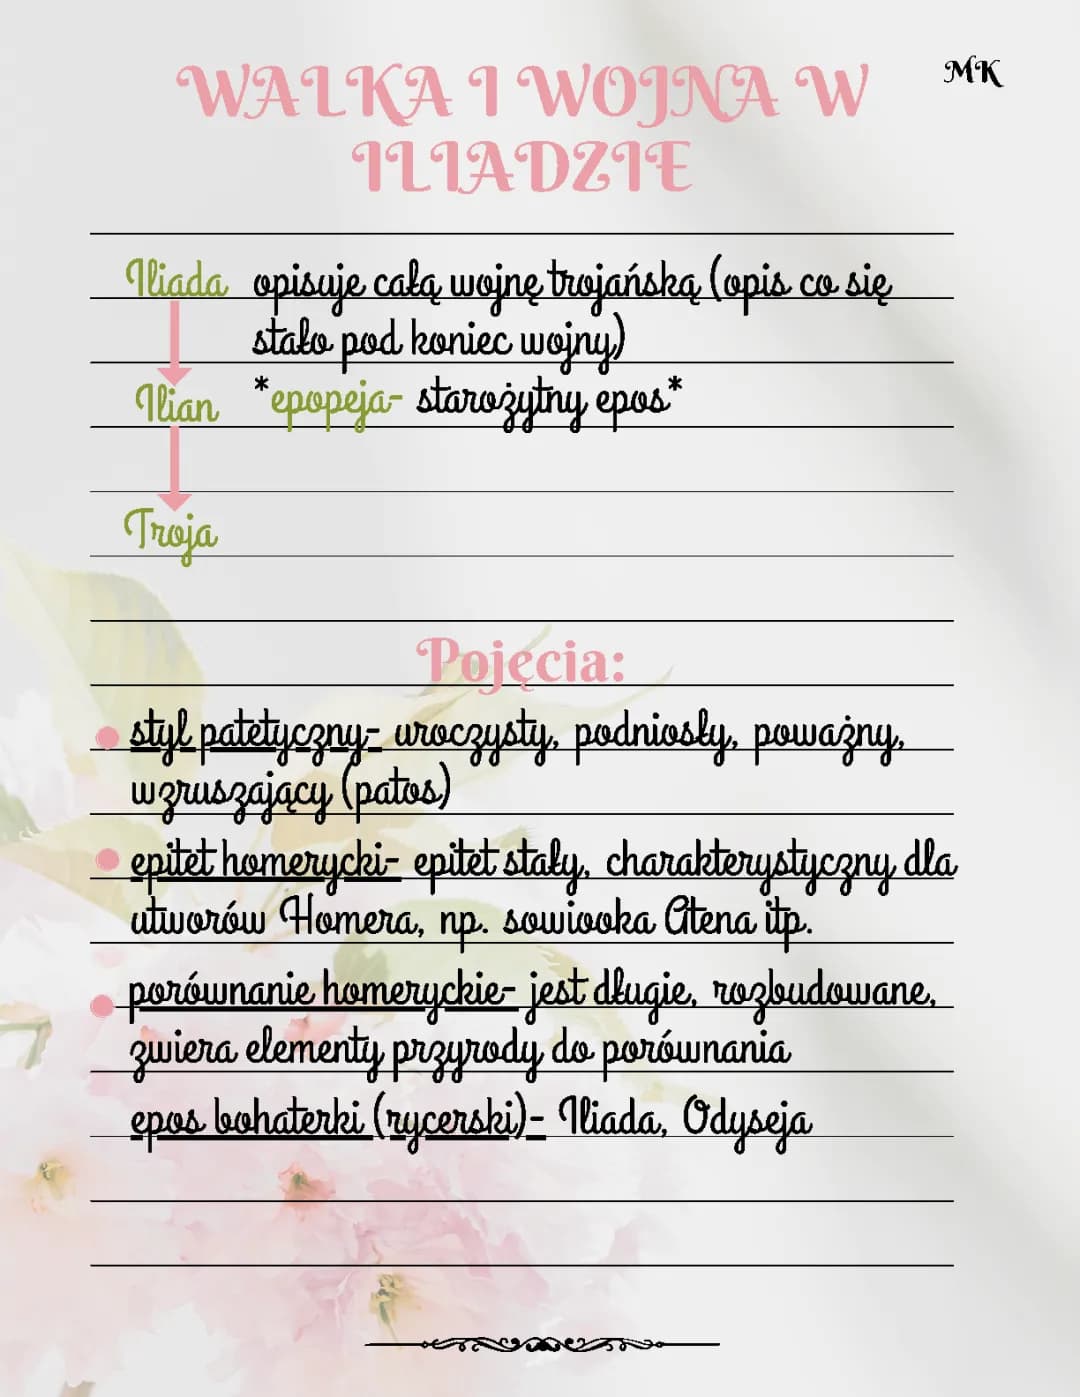 WALKA I WOJNA W
MK
ILIADZIE
Iliada opisuje całą wojnę trojańską (opis co się
stało pod koniec wojny)
Ilian *epopeja- starożytny epos*
Troja
Pojęcia:
styl patetyczny- uroczysty, podniosły, poważny,
wzruszający (patos)
epitet homerycki- epitet stały, charakterystyczny dla
utworów Homera, np. sowiooka Atena itp.
porównanie homeryckie- jest długie, rozbudowane,
zwiera elementy przyrody do porównania
epos bohaterki (rycerski)- Iliada, Odyseja